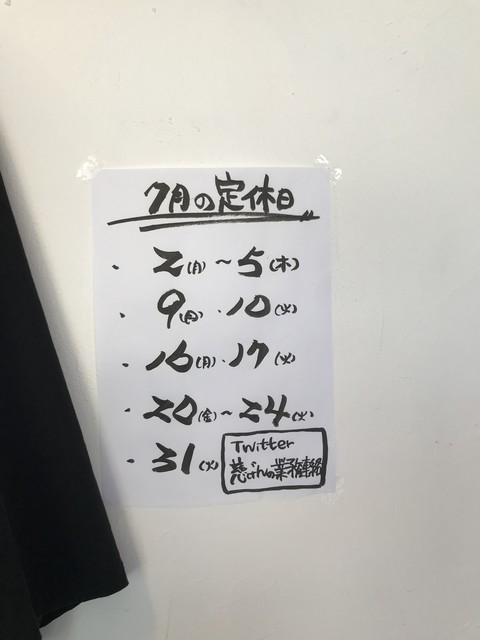 7月の定休日
・2(月)～5(木)
・9(月)・10(火)
・16(月)・17(火)
・20(金)～24(火)
・31(火)
Twitter
慈げんの業務連絡